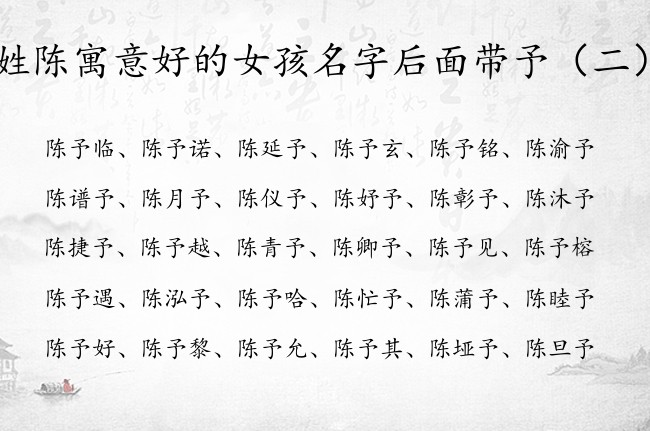 姓陈寓意好的女孩名字后面带予（二）
陈予临、陈予诺、陈延予、陈予玄、陈予铭、陈渝予
陈谱予、陈月予、陈仪予、陈妤予、陈彰予、陈沐予
陈捷予、陈予越、陈青予、陈卿予、陈予见、陈予榕
陈予遇、陈泓予、陈予哈、陈忙予、陈蒲予、陈睦予
陈予好、陈予黎、陈予允、陈予其、陈垭予、陈旦予